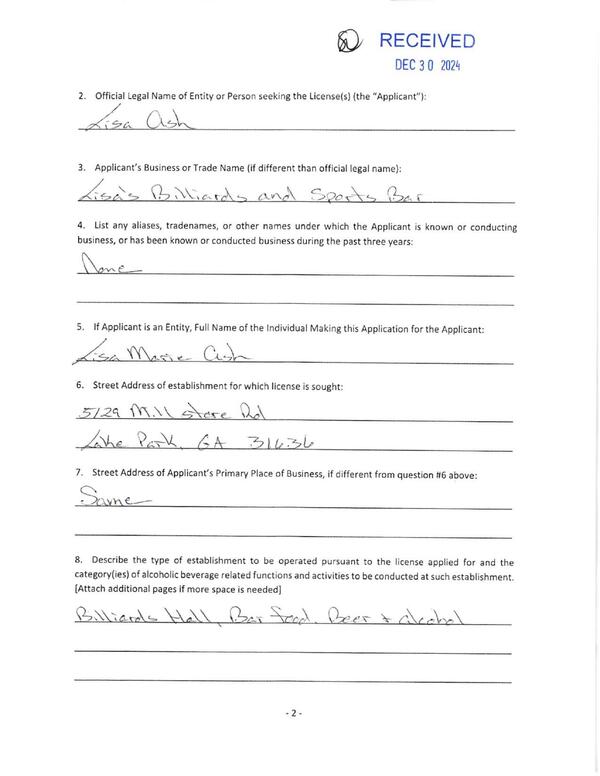 RECEIVED
DEC 30 2024
2. Official Legal Name of Entity or Person seeking the License(s) (the "Applicant"):
Lisa Ash
3. Applicant's Business or Trade Name (if different than official legal name):
Lisa's Billiards and Sports Bar
4. List any aliases, tradenames, or other names under which the Applicant is known or conducting
business, or has been known or conducted business during the past three years:
None
5. If Applicant is an Entity, Full Name of the Individual Making this Application for the Applicant:
Lisa Marie Ash
6. Street Address of establishment for which license is sought:
5129 Mill Store Rd
Lake Park, GA 31636
7. Street Address of Applicant's Primary Place of Business, if different from question #6 above:
Same
8. Describe the type of establishment to be operated pursuant to the license applied for and the
category(ies) of alcoholic beverage related functions and activities to be conducted at such establishment.
[Attach additional pages if more space is needed]
Billiards Hall, Bar food, Beer + alcohol
- 2 -